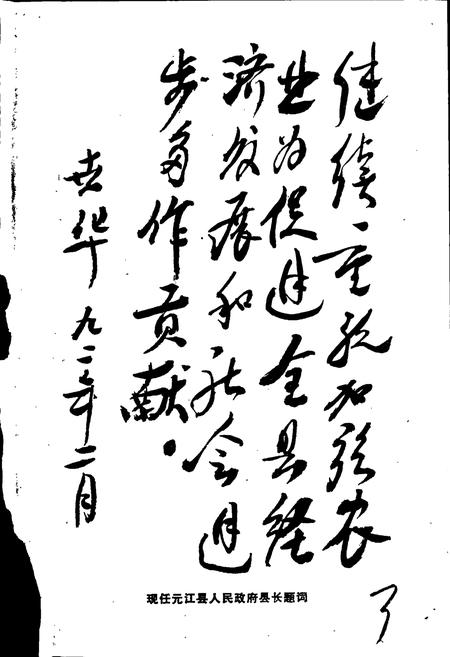 继续重视加强农
业为促进全县经
济发展和社会进
步多作贡献。
华 九二年二月
现任元江县人民政府县长题词